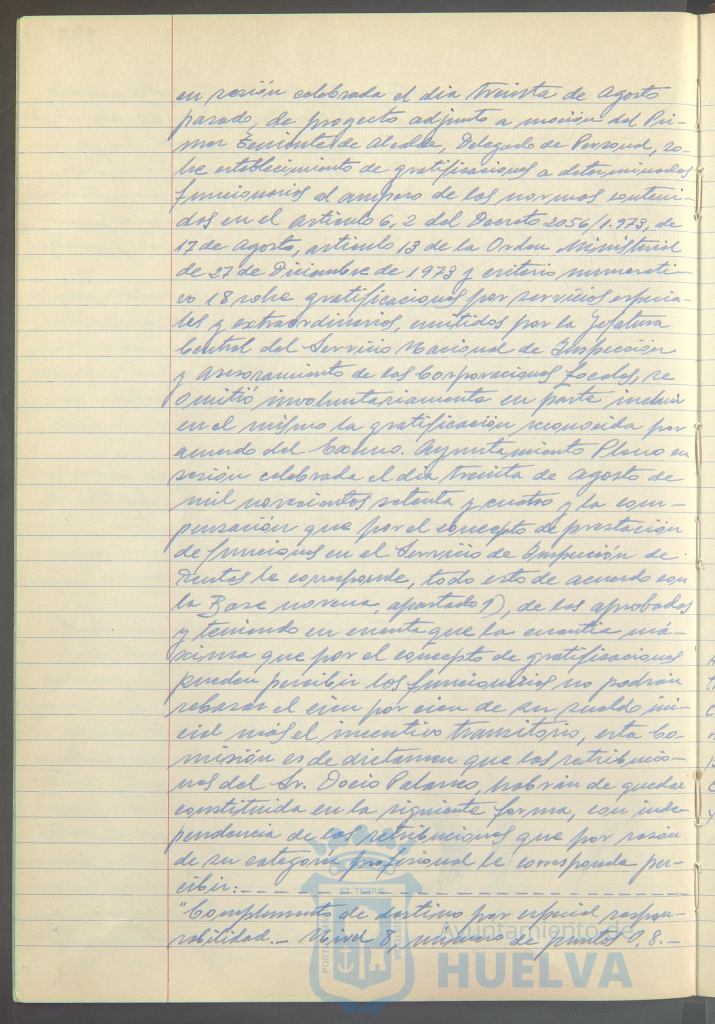 en sesión celebrada el día treinta de Agosto
pasado, de proyecto adjunto a moción del Pri-
mer Teniente de Alcalde, Delegado de Personal, so-
bre establecimiento de gratificaciones a determinados
funcionarios al amparo de las normas conteni-
das en el artículo 6, 2 del Decreto 2056/1.973, de
17 de Agosto, artículo 13 de la Orden Ministerial
de 27 de Diciembre de 1973 y criterio numerati-
vo 18 sobre gratificaciones por servicios especia-
les y extraordinarios, emitidos por la Jefatura
Central del Servicio Nacional de Inspección
y Asesoramiento de las Corporaciones Locales, se
omitió involuntariamente en parte incluir
en el mismo la gratificación reconocida por
acuerdo del Excmo. Ayuntamiento Pleno en
sesión celebrada el día treinta de Agosto de
mil novecientos setenta y cuatro y la com-
pensación que por el concepto de prestación
de funciones en el Servicio de Inspección de
Rentas le corresponde, todo esto de acuerdo con
la Base novena, apartado 1), de las aprobadas
y teniendo en cuenta que la cuantía má-
xima que por el concepto de gratificaciones
pueden percibir los funcionarios no podrán
rebasar el cien por cien de su sueldo ini-
cial más el incentivo transitorio, esta Co-
misión es de dictamen que las retribucio-
nes del Sr. Docio Palanco, habrán de quedar
constituida en la siguiente forma, con inde-
pendencia de las retribuciones que por razón
de su categoría profesional le corresponda per-
cibir:
"Complemento de destino por especial respon-
sabilidad.- Nivel 8, número de puntos 1,8.-
ET TERRAE
PORTUS
CUSTODIA
Ayuntamiento de
HUELVA